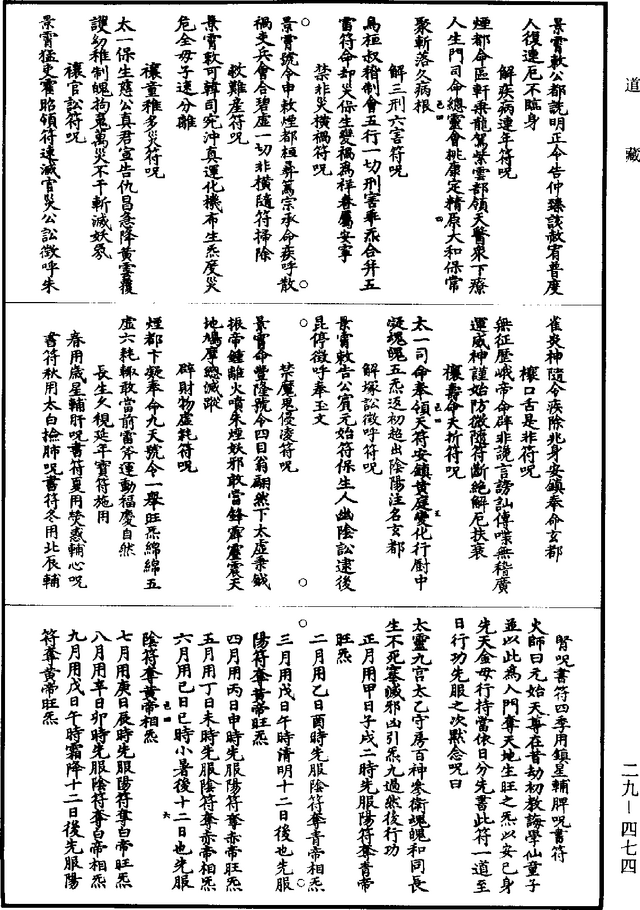 道藏
景霄敕公都說明正令告仲臻該敵宥普度
人復連厄不臨身
解疾病連年符咒
煙都命區軒乘龍駕紫雲部領天醫來下療
人生門司命總靈會桃康定精原大和保常
聚斬落久病根
解三刑六害符咒
烏桓叔稽制會五行一切刑害乖炁合幷五
雷符命却災保生變禍爲祥眷屬安寧
禁非災橫禍符咒
景霄號令申敕煙都桓彝篤宗承命疾呼散
禍吏兵會合碧虛一切非橫隨符掃除
救難產符咒
景霄敕可韓司宪沖真運化機布生炁度災
危全母子速分離
禳童稚多災符咒
太一保生慈公真君宣告仇昌急降黄雲覆
護幼稚制魄拘鬼萬災不干斬滅妖氛
禳官訟符咒
景霄猛吏霍昭領符速滅官災公訟徵呼朱
雀炎神隨令疾除兆身安鎮奉命玄都
禳口舌是非符咒
架征壓峨帝命辟非詭言謗訕傳喋無稽廣
運威神謹始防微隨符斷絕解厄扶衰
禳壽命夭折符咒
太一司命奉領天符安鎮黄庭變化行厨中
凝魂魄五炁返初超出陰陽注名玄都
解塚訟徵呼符咒
景霄敕告公賓元始符保生人幽陰訟逮後
昆停徵呼奉玉文
禁魔鬼侵凌符咒
景霄命豐隆號令四目翁翩然下太虛乘鉞
振帝鍾離火噴朱煙妖邪敢當鋒霹靂震天
地鳩摩總滅蹤
辟財物虛耗符咒
煙都下凝奉命九天號令一舉旺炁綿綿五
虛六耗輙敢當前雷斧運動福慶自然
長生久視延年寶符施用
春用歲星輔肝咒書符夏用熒惑輔心咒
書符秋用太白撿肺咒書符冬用北辰輔
腎咒書符四季用鎮星輔脾咒書符
火師曰元始天尊在昔劫初教誨學仙童子
並以此爲入門奪天地生旺之炁以安己身
先天金母行持當依日分先書此符一道至
日行功先服之次默念咒曰
太靈九宫太乙守房百神參衛魂魄和同長
生不死塞滅邪凶引炁九過然後行功
正月用甲日子戌二時先服陽符奪青帝
旺炁
二月用乙日酉時先服陰符奪青帝相炁
三月用戊日午時清明十二日後也先服
陽符奪黄帝旺炁
四月用丙日申時先服陽符奪赤帝旺炁
五月用丁日未時先服陰符奪赤帝相炁
六月用己日巳時小暑後十二日也先服
陰符奪黄帝相炁
七月用庚日辰時先服陽符奪白帝旺炁
八月用辛日卯時先服陰符奪白帝相炁
九月用戊日午時霜降十二日後先服陽
符奪黄帝旺炁
二九—四七四